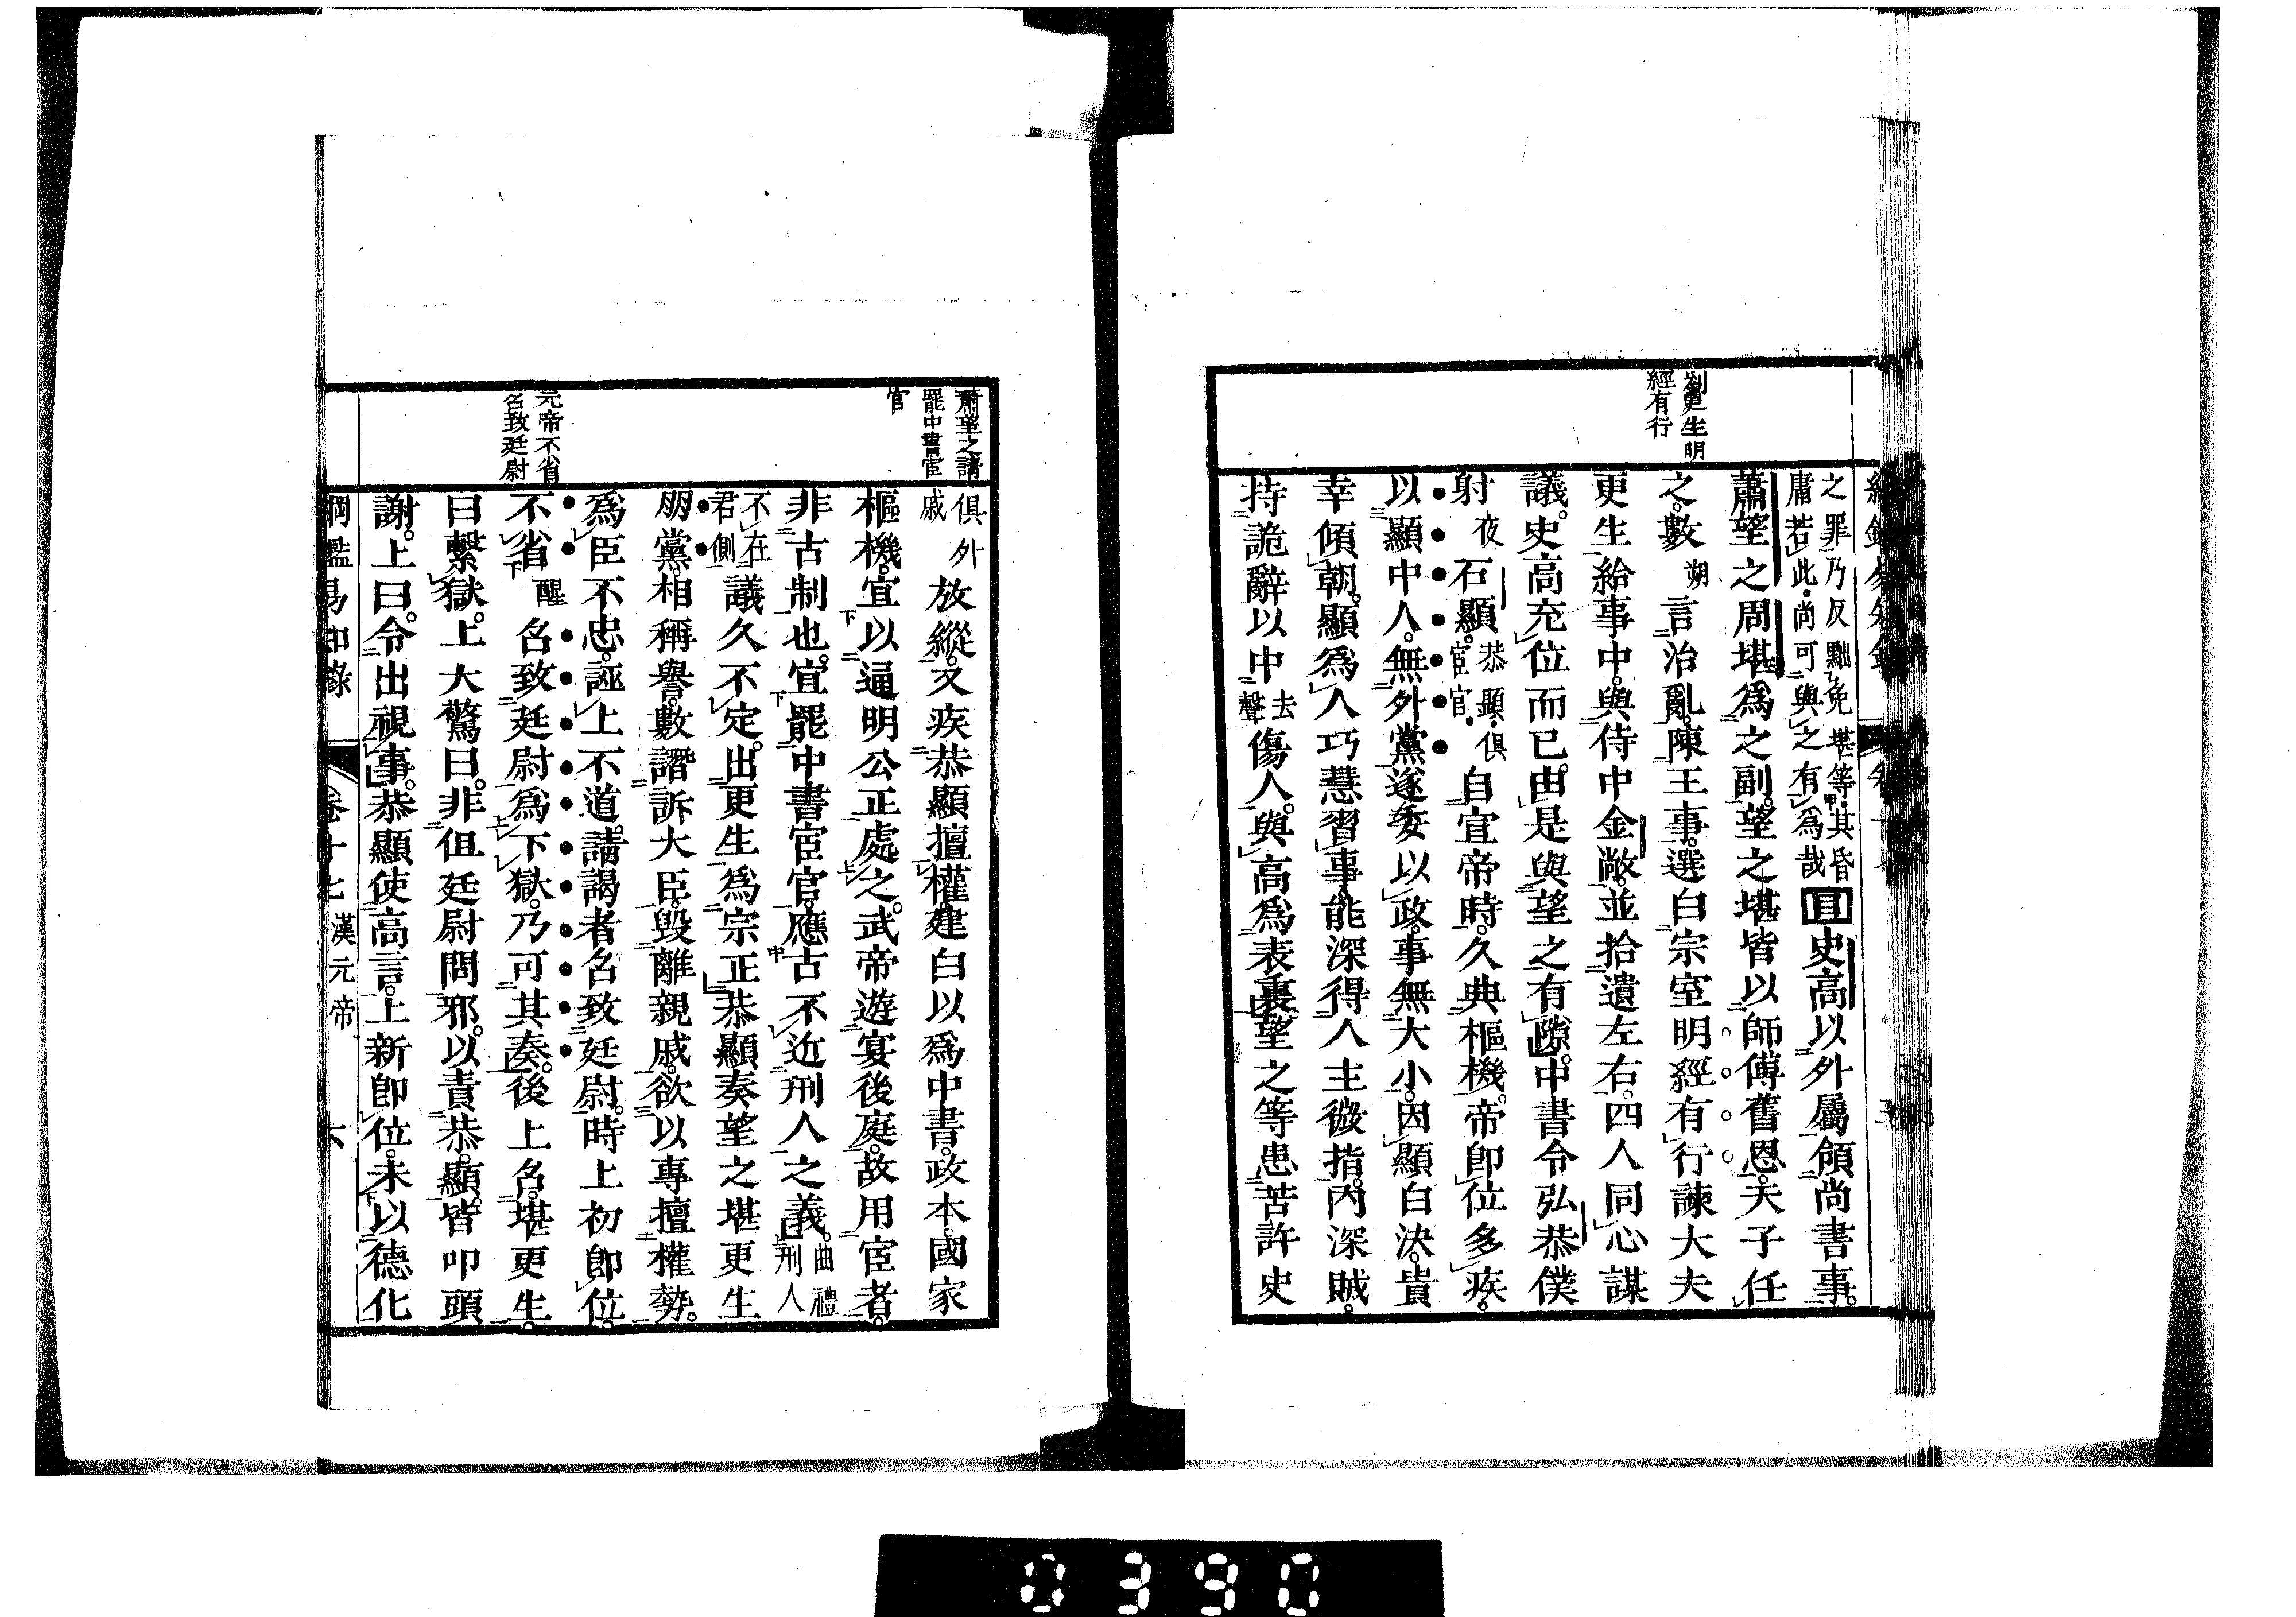 劉更生明
經有行
之罪乃反黜免堪等其昏
庸若此尚可與之有爲哉
目史高以外屬領尚書事。
蕭望之周堪爲之副。望之堪皆以師傅舊恩。天子任
之。數朔言治亂。陳王事。選白宗室明經有行諫大夫
更生給事中。與侍中金敞。並拾遺左右。四人同心謀
議。史高充位而已。由是與望之有隙。中書令弘恭僕
射夜石顯。恭顯俱宦官自宣帝時。久典樞機。帝卽位多疾。
以顯中人。無外黨。遂委以政。事無大小。因顯白決。貴
幸傾朝。顯爲人巧慧習事。能深得人主微指。內深賊。
持詭辭以中去聲傷人。與高爲表裏。望之等患苦許史
蕭望之請
罷中書宦
官
俱外
戚
放縱。又疾恭顯擅權。建白以爲中書。政本。國家
樞機。宜以通明公正處之。武帝遊宴後庭。故用宦者。
非古制也。宜罷中書宦官。應古不近刑人之義。曲禮刑人
不在
君側
議久不定。出更生爲宗正。恭顯奏望之堪更生
朋黨。相稱譽。數譖訴大臣。毀離親戚。欲以專擅權勢。
元帝不省
名致廷尉
爲臣不忠。誣上不道。請謁者名致廷尉。時上初卽位。
不省醒名致廷尉爲下獄。乃可其奏。後上名堪更生。
曰繫獄。上大驚曰。非但廷尉問邪。以責恭。顯。皆叩頭
謝。上曰。令出視事。恭顯使高言。上新卽位。未以德化
綱鑑易知錄 卷十七 漢元帝 六